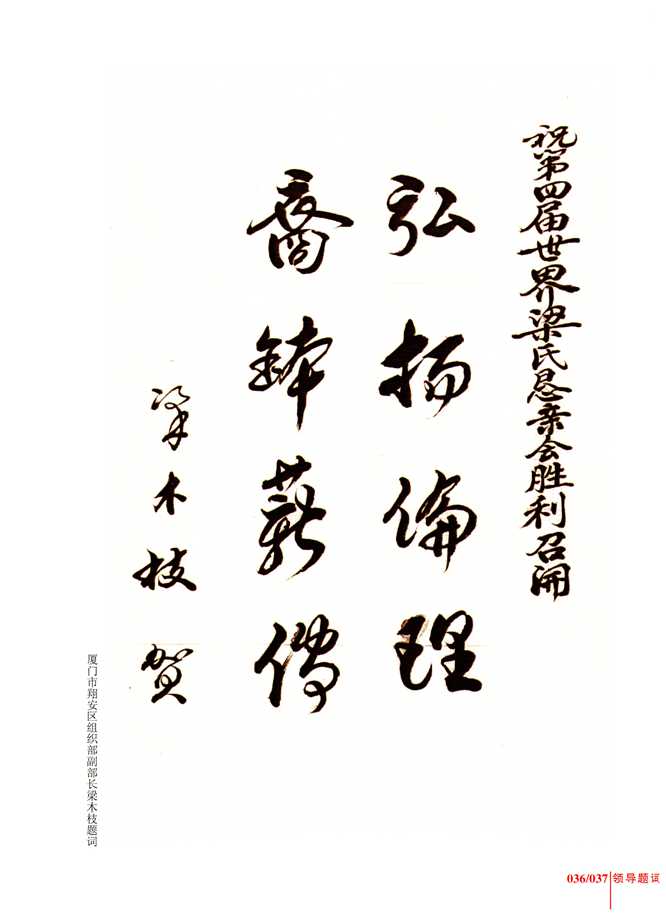 祝第四届世界梁氏恳亲会胜利召开
弘扬倫理
裔鉢薪傳
梁木枝賀
厦门市翔安区组织部副部长梁木枝题词
036/037 领导题词